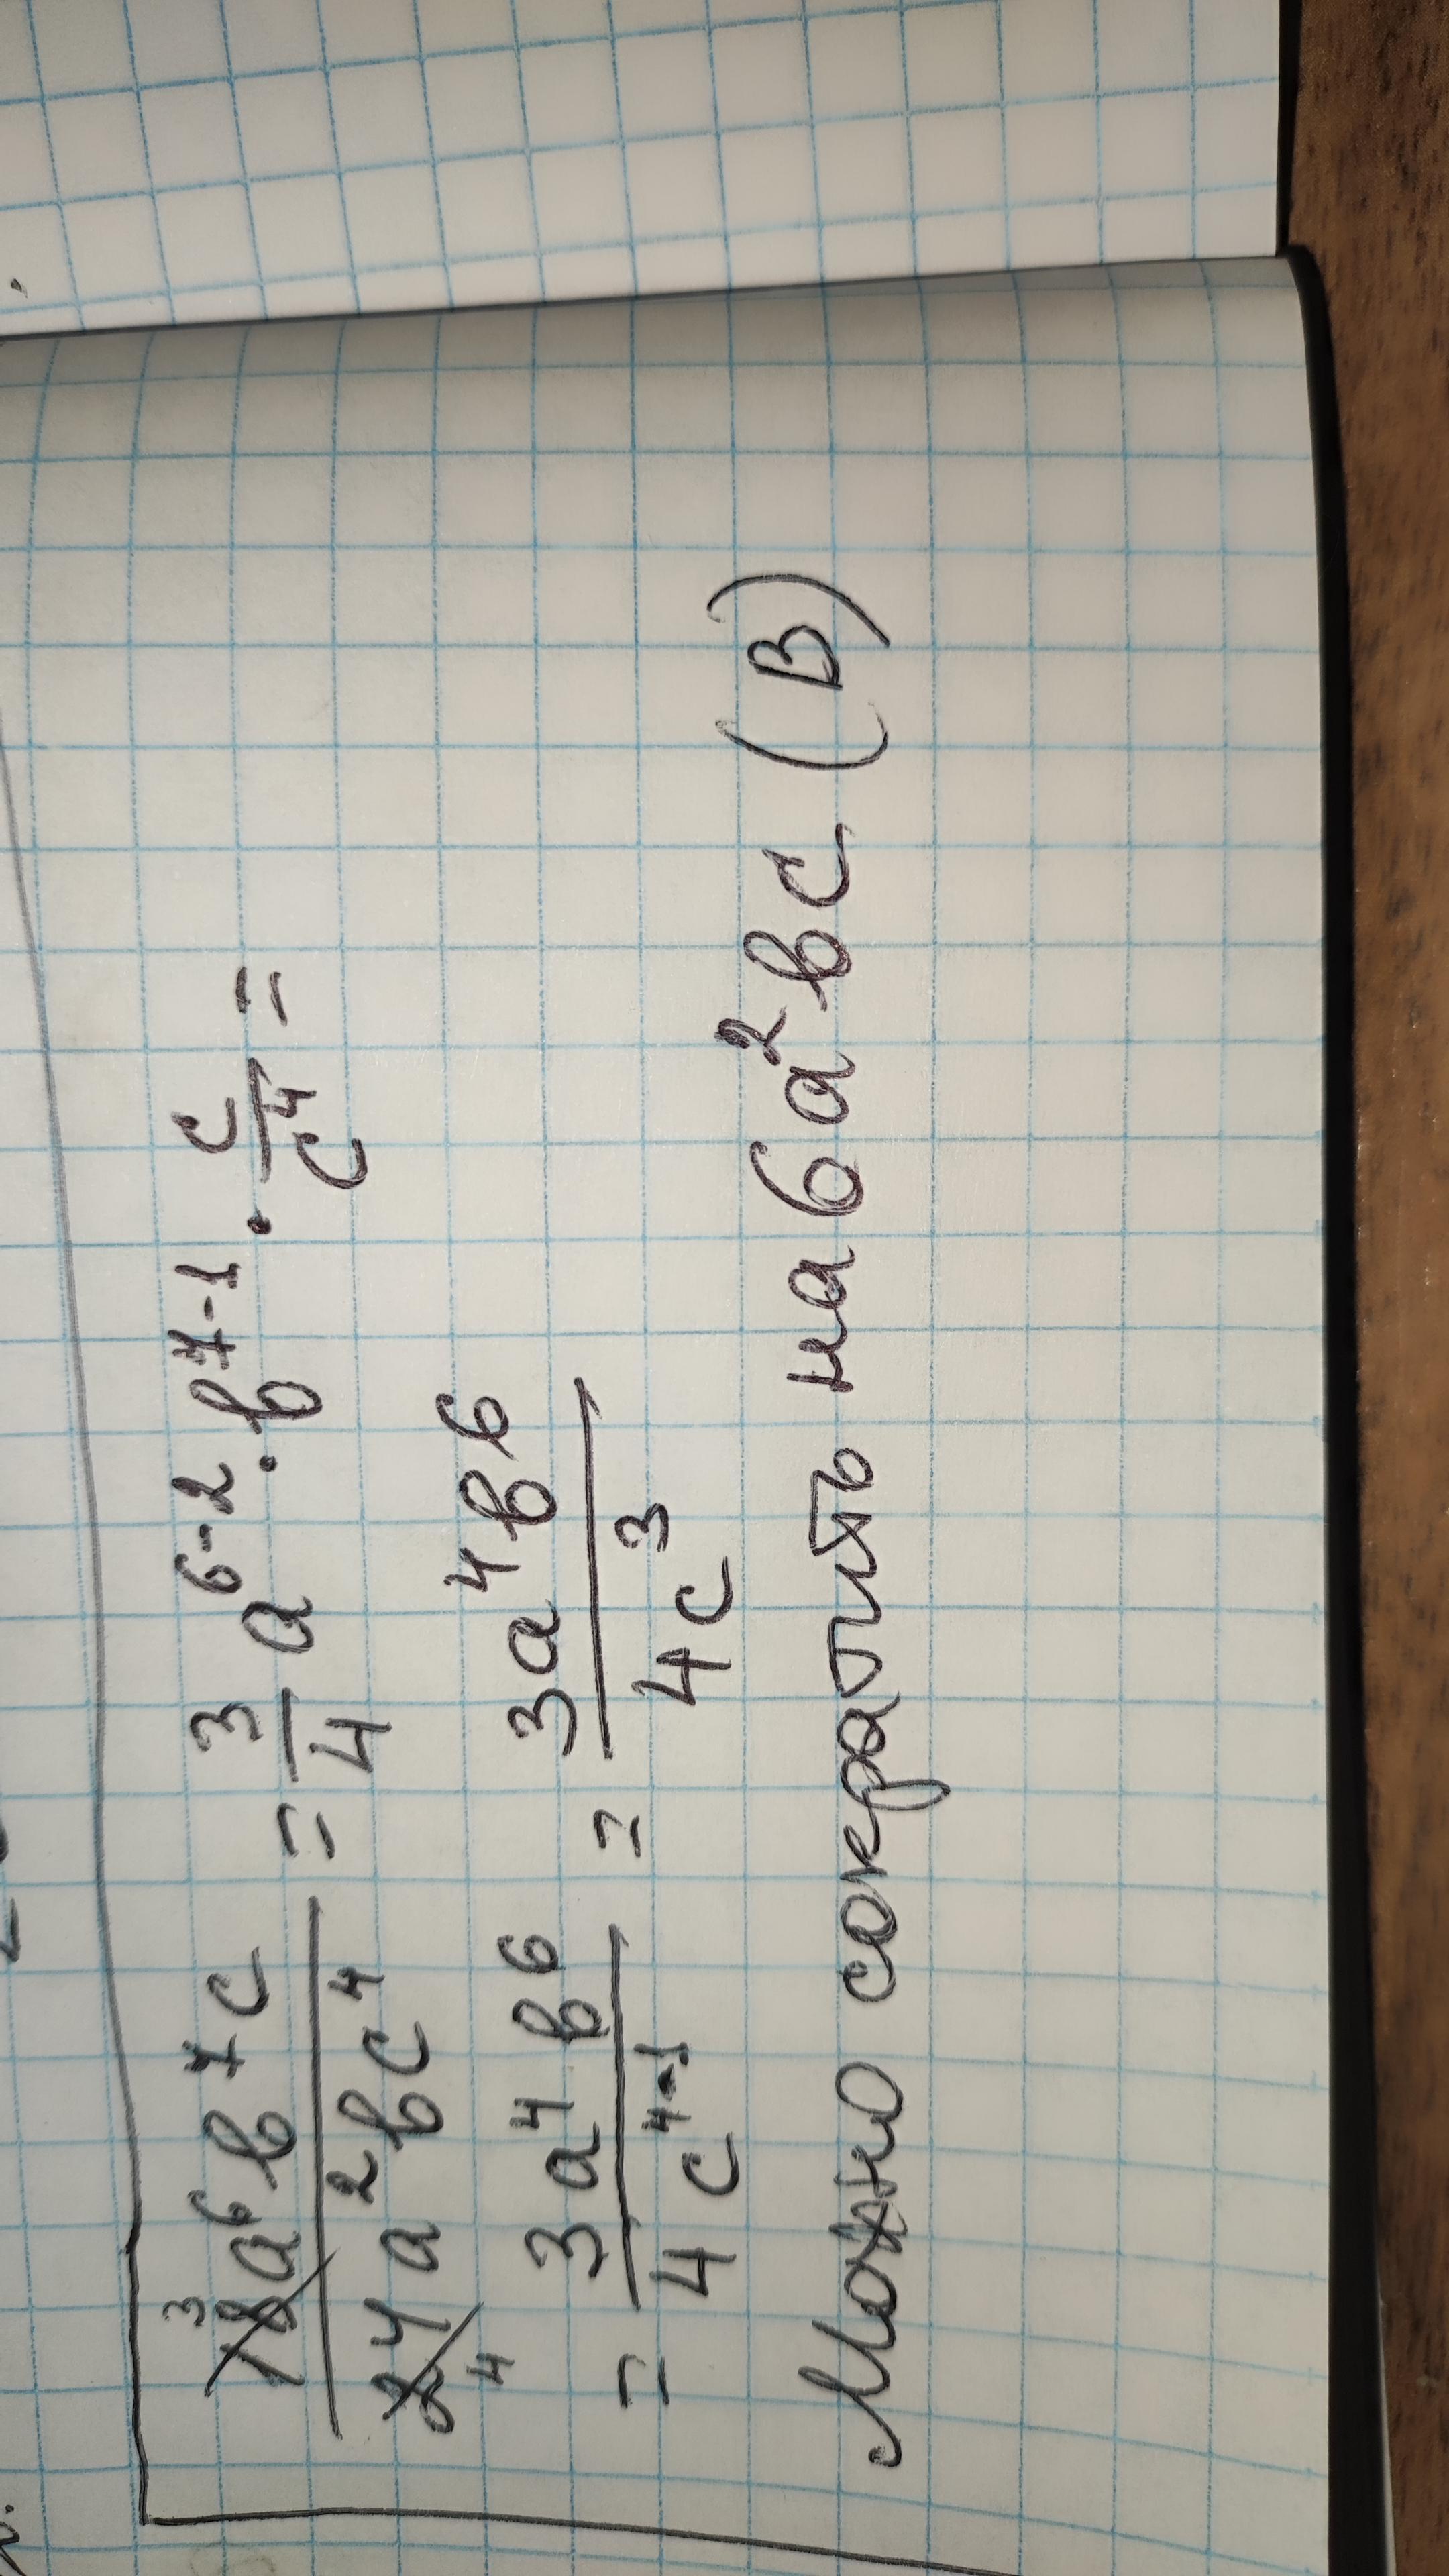 18a⁶b⁷c / 24a²bc⁴ = 3/4 a⁶⁻² · b⁷⁻¹ · c/c⁴ =
= 3a⁴b⁶ / 4c⁴⁻¹ = 3a⁴b⁶ / 4c³
Можно сократить на 6a²bc (В)